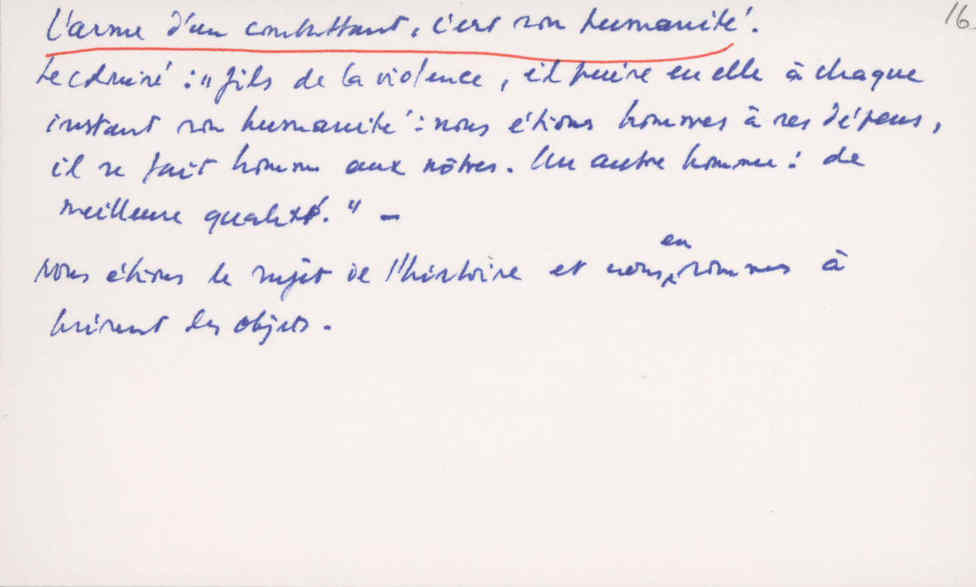 16.
L'arme d'un combattant, c'est son humanité.
Le colonisé : "fils de la violence, il puise en elle à chaque
instant son humanité : nous étions hommes à ses dépens,
il se fait homme aux nôtres. Un autre homme : de
meilleure qualité." –
Nous étions le sujet de l'histoire et nous en sommes à
présent les objets.